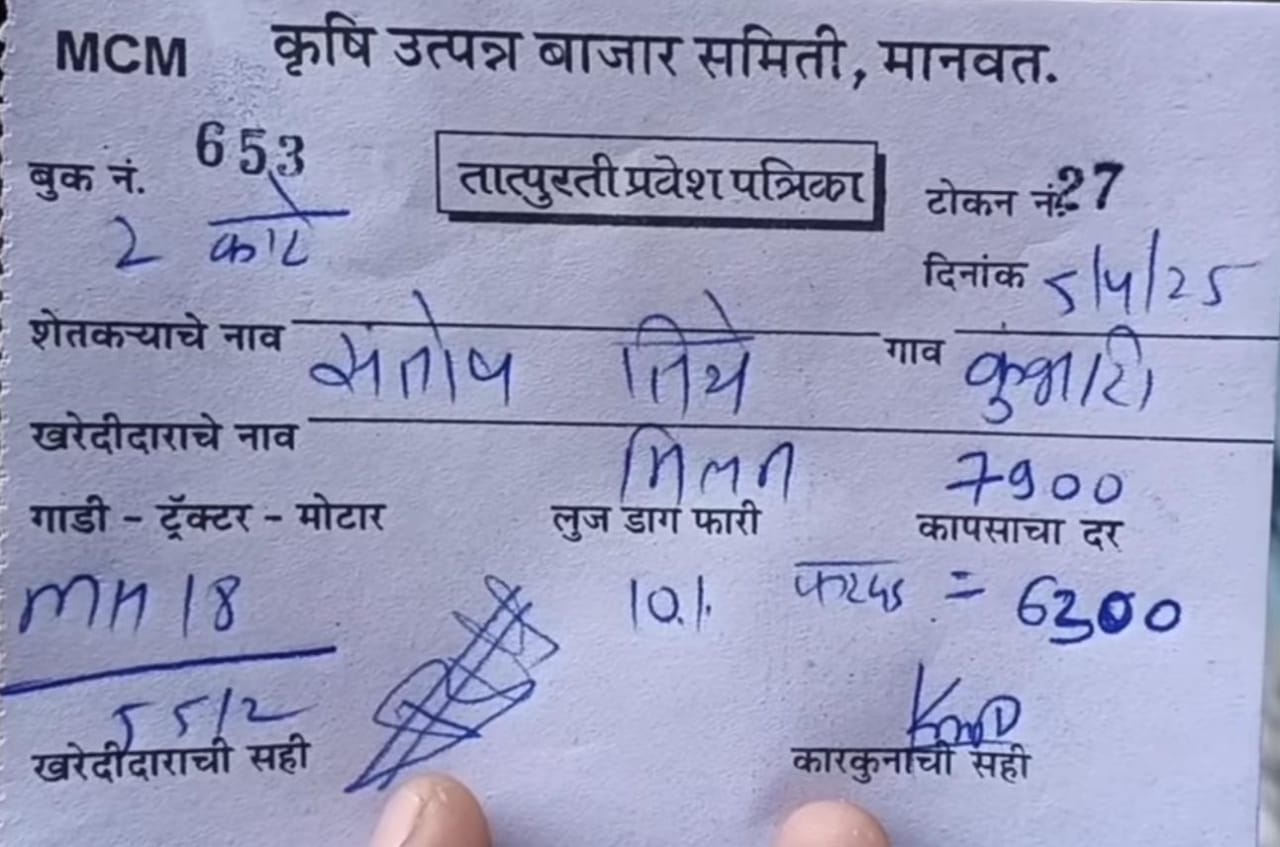 MCM कृषि उत्पन्न बाजार समिती, मानवत.
बुक नं. 653
तात्पुरती प्रवेश पत्रिका
टोकन नं. 27
2
दिनांक 5/4/25
शेतकऱ्याचे नाव संतोष तिथे गाव कुंभारी
खरेदीदाराचे नाव मिलन 7900
गाडी - ट्रॅक्टर - मोटार लुज डाग फारी कापसाचा दर
MH 18 10.1. फरदड = 6300
5512
खरेदीदाराची सही कारकुनाची सही